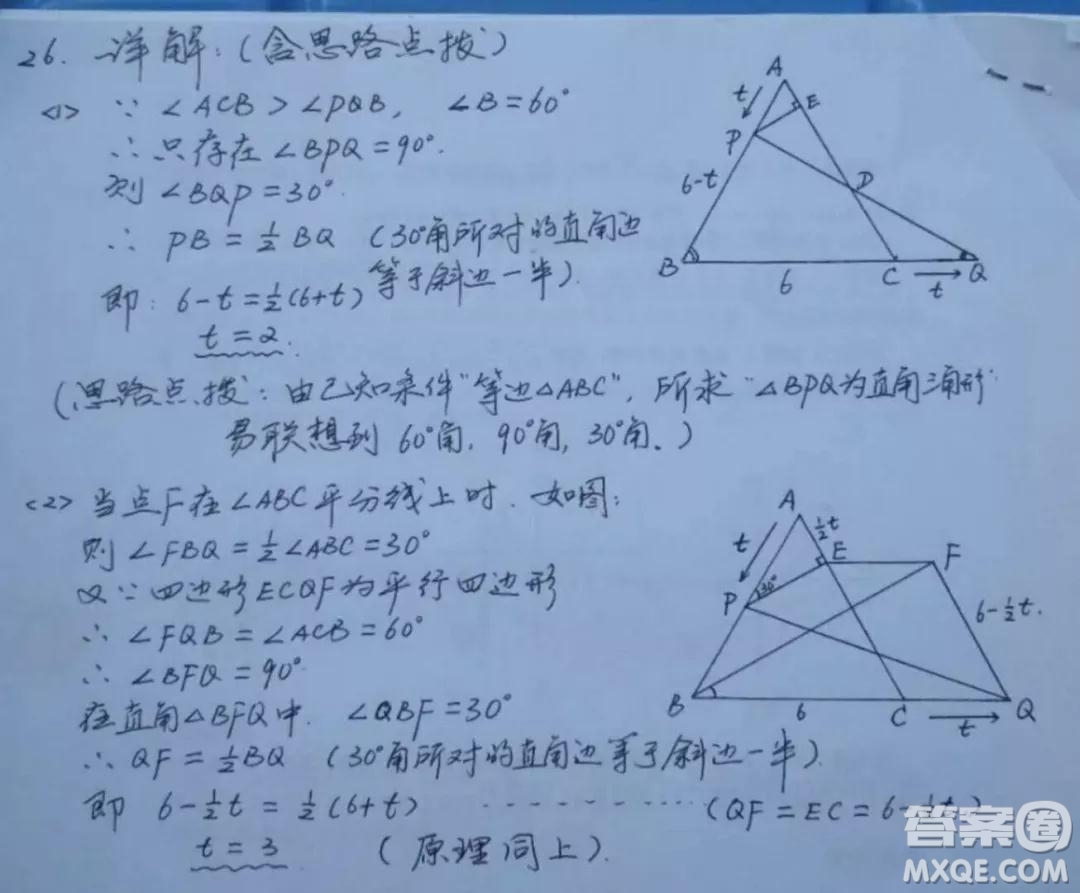 26. 详解：(含思路点拨)
<1> ∵ ∠ACB > ∠PQB, ∠B = 60°
∴ 只存在 ∠BPQ = 90°.
则 ∠BQP = 30°.
∴ PB = ½ BQ (30°角所对的直角边
等于斜边一半).
即: 6-t = ½(6+t)
t = 2.
A
t
E
P
6-t
D
B
6
C
t
Q
(思路点拨: 由已知条件"等边△ABC", 所求"△BPQ为直角三角形"
易联想到 60°角, 90°角, 30°角.)
<2> 当点F在∠ABC平分线上时. 如图:
则 ∠FBQ = ½∠ABC = 30°
又∵ 四边形ECQF为平行四边形
∴ ∠FQB = ∠ACB = 60°
∴ ∠BFQ = 90°
在直角△BFQ中. ∠QBF = 30°
∴ QF = ½BQ (30°角所对的直角边等于斜边一半).
即 6-½t = ½(6+t) ············ (QF = EC = 6-½t)
t = 3 (原理同上).
A
½t
t
E
F
30°
P
6-½t.
B
6
C
t
Q
答案圈
MXQE.COM